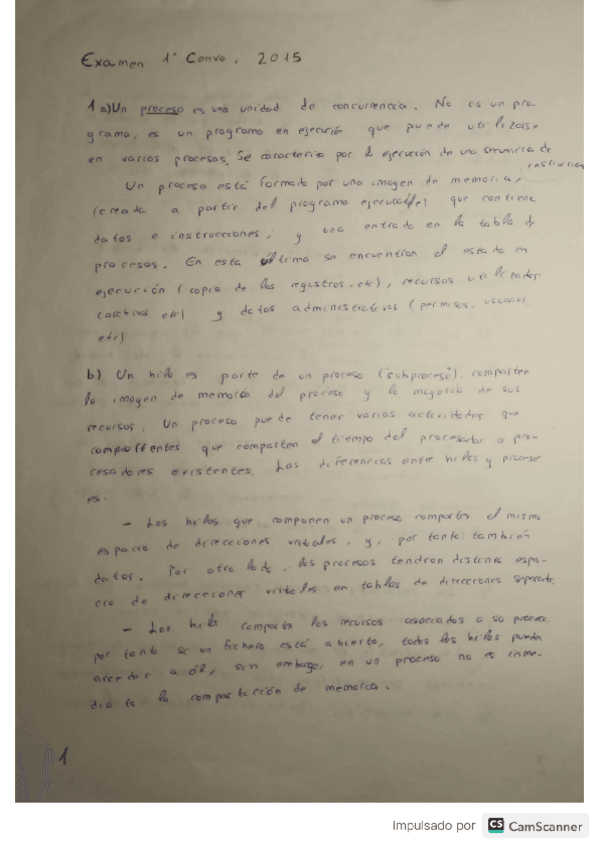 Examen 1ª Convo. 2015
1 a) Un proceso es una unidad de concurrencia. No es un pro-
grama, es un programa en ejecución que puede utilizarse
en varios procesos. Se caracteriza por la ejecución de una secuencia de
instrucciones
Un proceso está formado por una imagen de memoria,
(creada a partir del programa ejecutable) que contiene
datos e instrucciones, y una entrada en la tabla de
procesos. En esta última se encuentran el estado en
ejecución (copia de los registros, etc), recursos utilizados
(archivos etc) y datos administrativos (permisos, usuarios,
etc)
b) Un hilo es parte de un proceso (subproceso) comparten
la imagen de memoria del proceso y la mayoría de sus
recursos. Un proceso puede tener varias actividades que
que comparten el tiempo del procesador o pro-
cesadores existentes. Las diferencias entre hilos y proceso
es.
- Los hilos que componen un proceso comparten el mismo
espacio de direcciones virtuales, y, por tanto, también
datos. Por otro lado, los procesos tendran distinto espa-
cio de direcciones virtuales en tablas de direcciones separadas
- Los hilo comparten los recursos asociados a su proceso,
por tanto si un fichero está abierto, todos los hilos pueden
acceder a él, sin embargo, en un proceso no es inme-
diata la compartición de memoria.
1
Impulsado por CS CamScanner